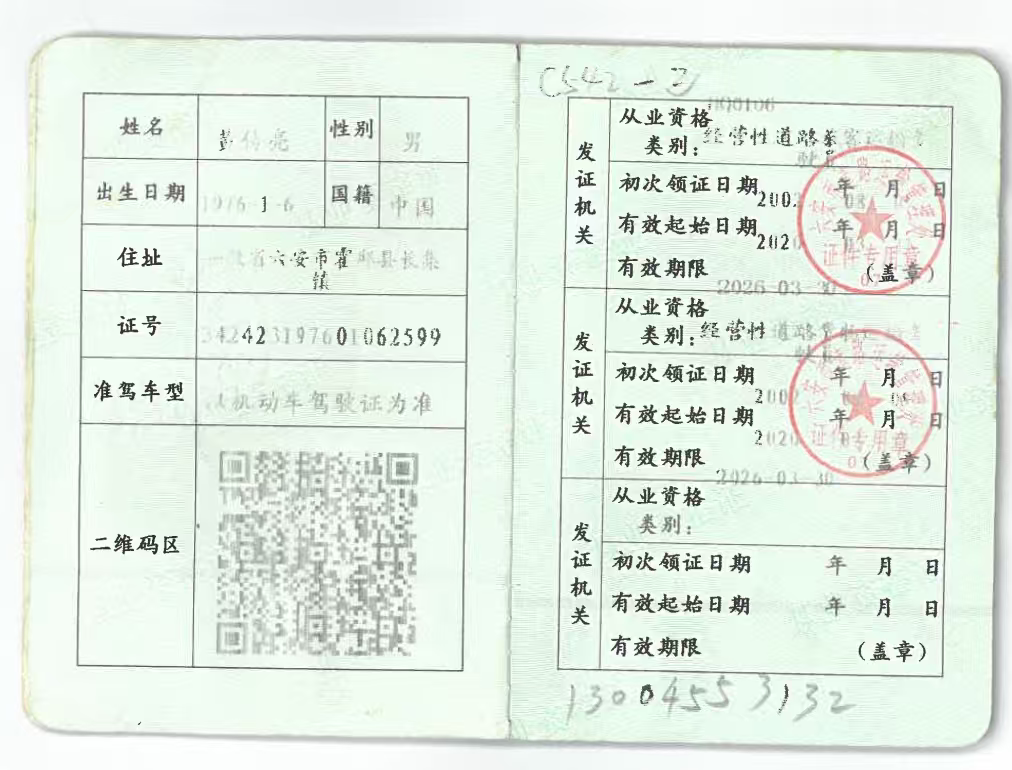 姓名 彭传亮 性别 男
出生日期 1976-1-6 国籍 中国
住址 省六安市霍邱县长集
镇
证号 342423197601062599
准驾车型 以机动车驾驶证为准
二维码区
C542-卫
000106
发证机关
从业资格
类别: 经营性道路旅客运输驾
驶员
初次领证日期 年 月 日
2002 08
有效起始日期 年 月 日
2020 03
有效期限 (盖章)
2026-03-30
证件专用章
发证机关
从业资格
类别: 经营性道路货物运输驾
驶员
初次领证日期 年 月 日
2002 08
有效起始日期 年 月 日
2020
有效期限 (盖章)
2026-03-30
证件专用章
发证机关
从业资格
类别:
初次领证日期 年 月 日
有效起始日期 年 月 日
有效期限 (盖章)
13004553132